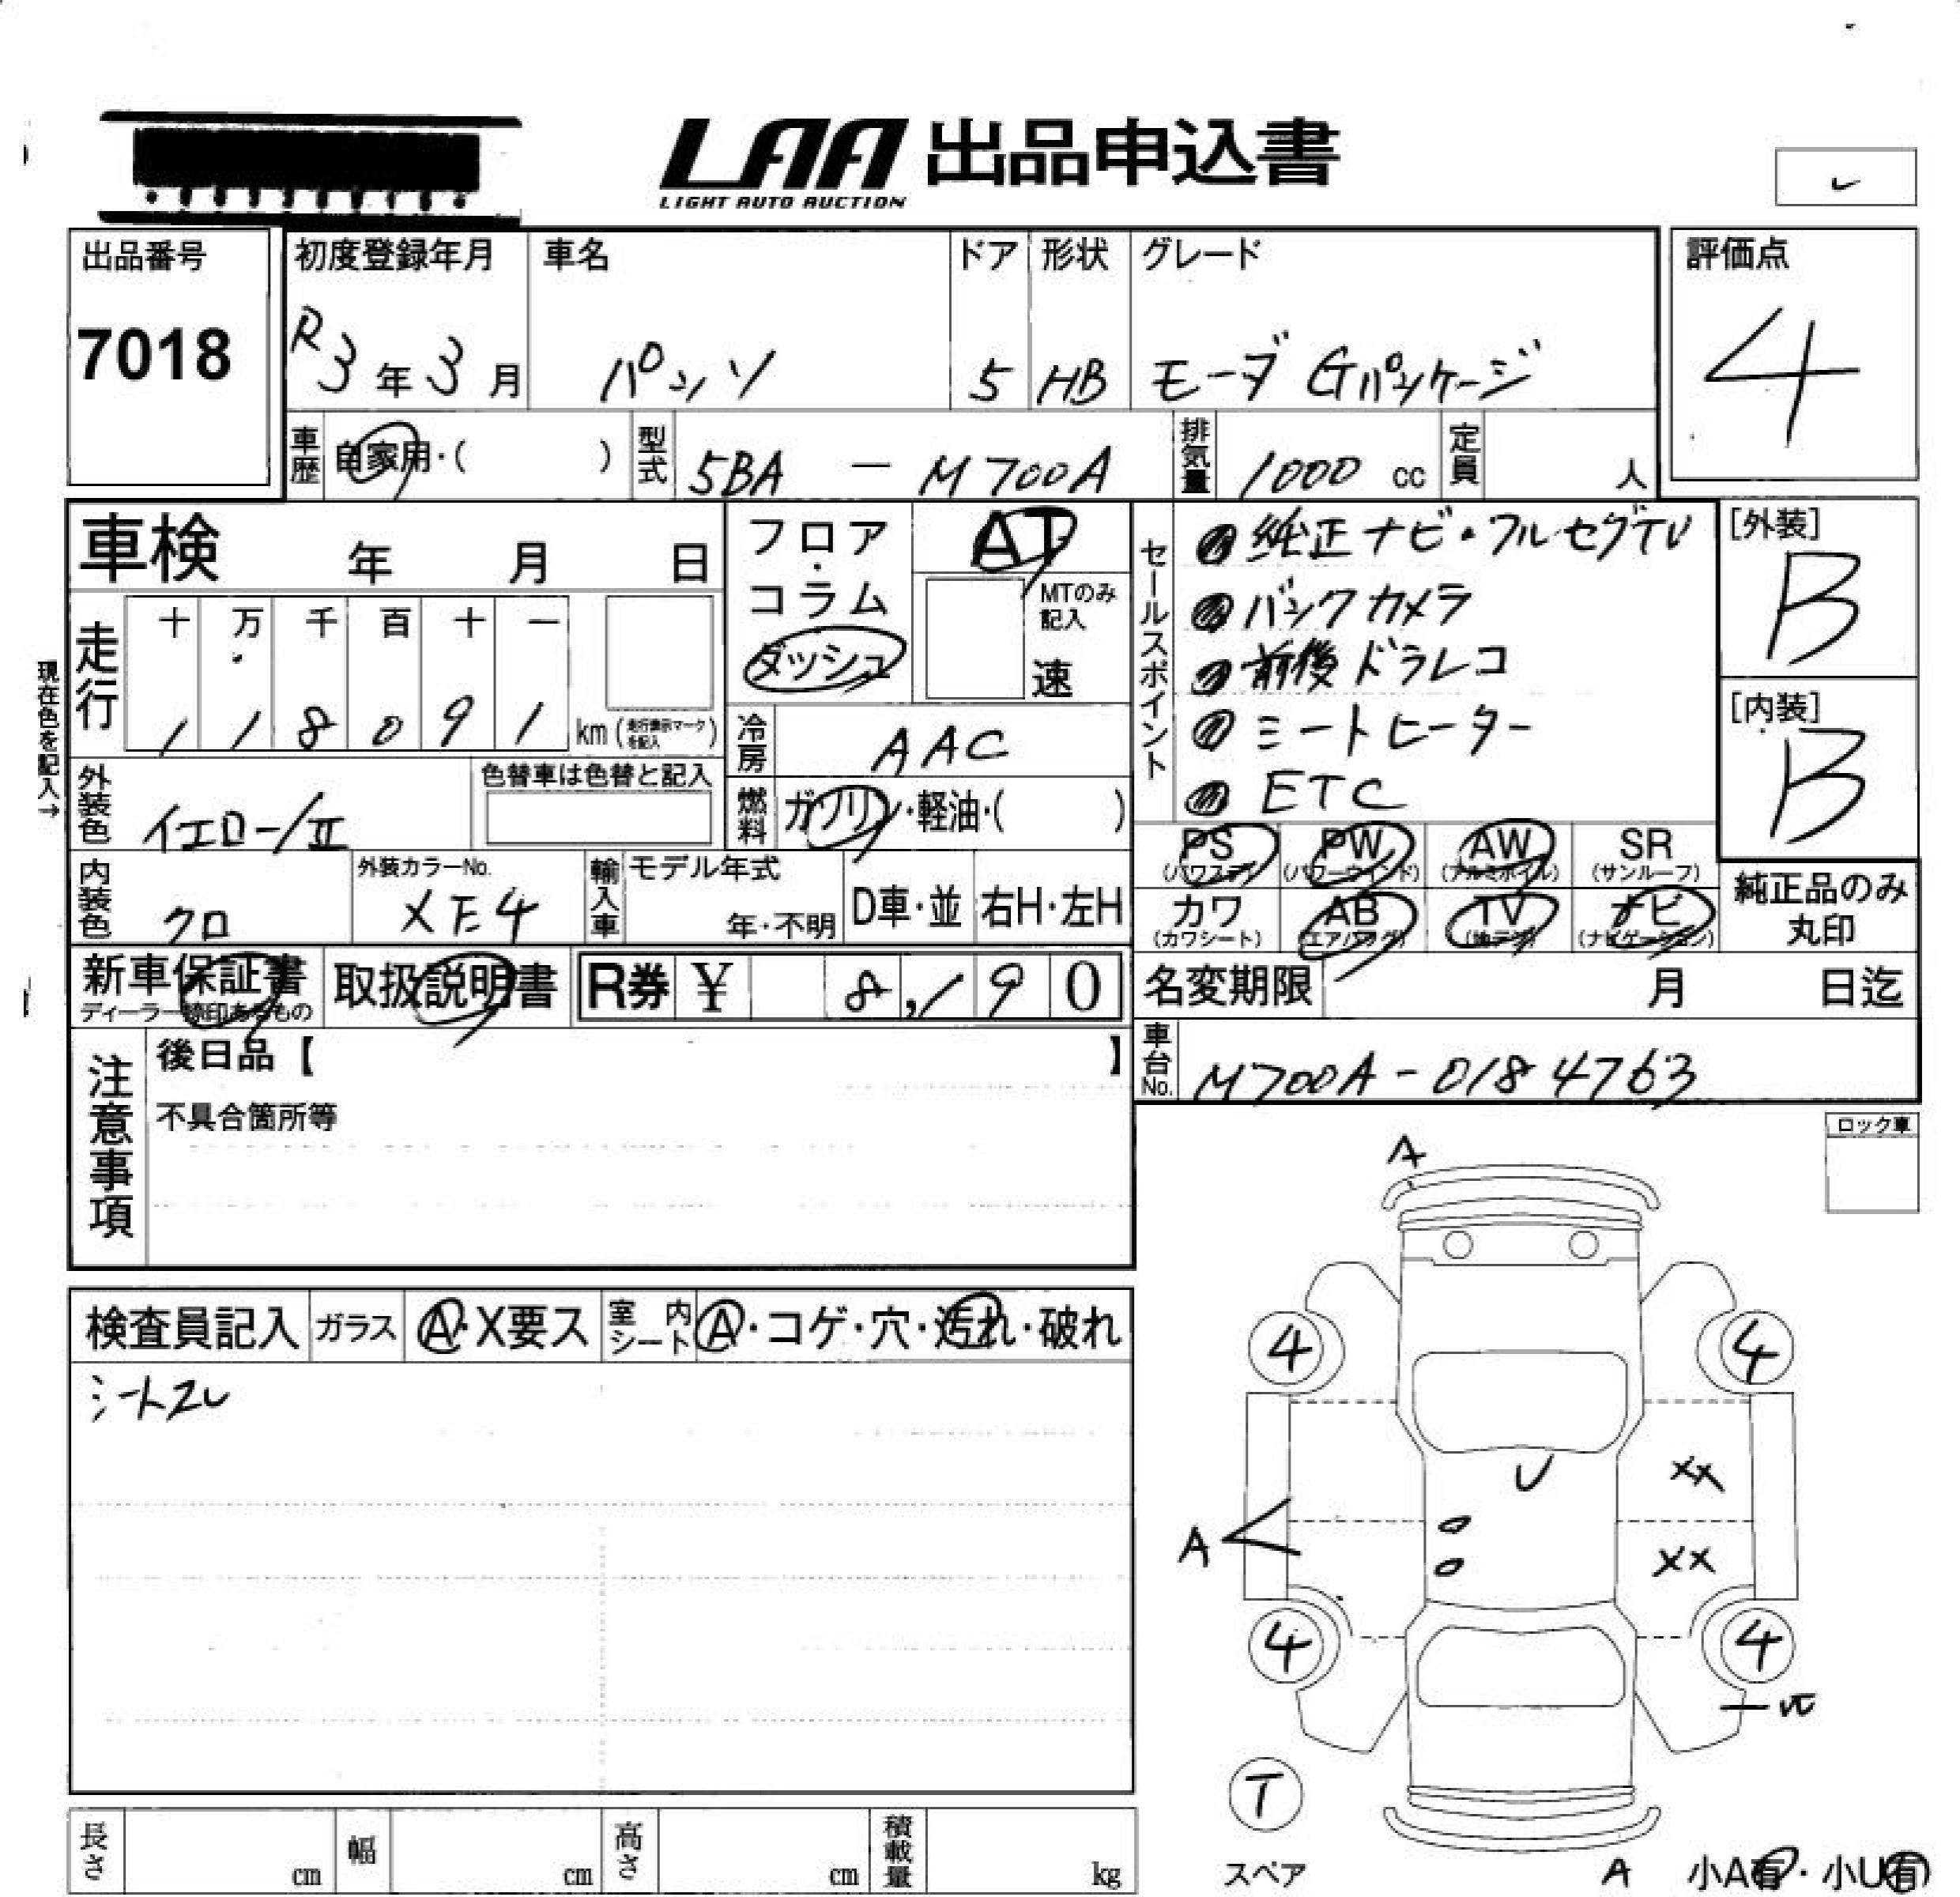 LAA 出品申込書
LIGHT AUTO AUCTION
出品番号
7018
初度登録年月
R3年3月
車名
パッソ
ドア
5
形状
HB
グレード
モーダ Gパッケージ
評価点
4
車歴
自家用・( )
型式
5BA - M700A
排気量
1000 cc
定員
人
車検 年 月 日
現在色を記入→
走行
十 万 千 百 十 一
1 1 8 0 9 1 km (走行表示マークを記入)
フロア・コラム
ダッシュ
AT
MTのみ記入
速
セールスポイント
純正ナビ・フルセグTV
バックカメラ
前後ドラレコ
シートヒーター
ETC
[外装]
B
[内装]
B
冷房
AAC
燃料
ガソリン・軽油・( )
外装色
イエロー/II
色替車は色替と記入
内装色
クロ
外装カラーNo.
XE4
輸入車
モデル年式
年・不明
D車・並
右H・左H
PS
(パワステ)
PW
(パワーウインド)
AW
(アルミホイル)
SR
(サンルーフ)
カワ
(カワシート)
AB
(エアバッグ)
TV
(地デジ)
ナビ
(ナビゲーション)
純正品のみ
丸印
新車保証書
ディーラー捺印あるもの
取扱説明書
R券 ¥ 8,190
名変期限 月 日迄
車台No.
M700A-0184763
注意事項
後日品【 】
不具合箇所等
ロック車
検査員記入
ガラス
A・X要ス
室内シート
A・コゲ・穴・汚れ・破れ
シートスレ
A
4
4
U
XX
A
XX
4
4
T
スペア
A
小A有・小U有
長さ
cm
幅
cm
高さ
cm
積載量
kg